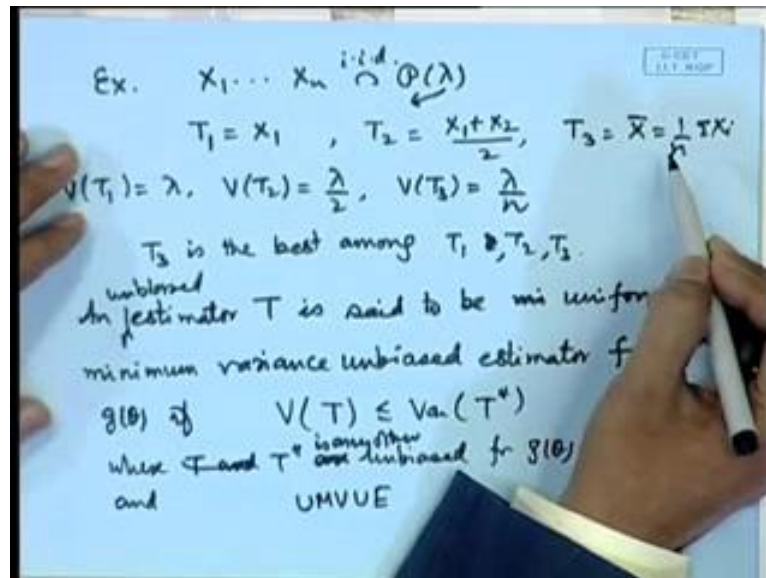 Ex. X₁ ... Xₙ i.i.d. ~ P(λ)
T₁ = X₁ , T₂ = (X₁+X₂)/2 , T₃ = X̄ = 1/n ΣXᵢ
V(T₁) = λ, V(T₂) = λ/2, V(T₃) = λ/n
T₃ is the best among T₁, T₂, T₃.
An unbiased estimator T is said to be uniform
minimum variance unbiased estimator f
g(θ) if V(T) ≤ Var(T*)
where T* is any other unbiased fr g(θ)
and UMVUE